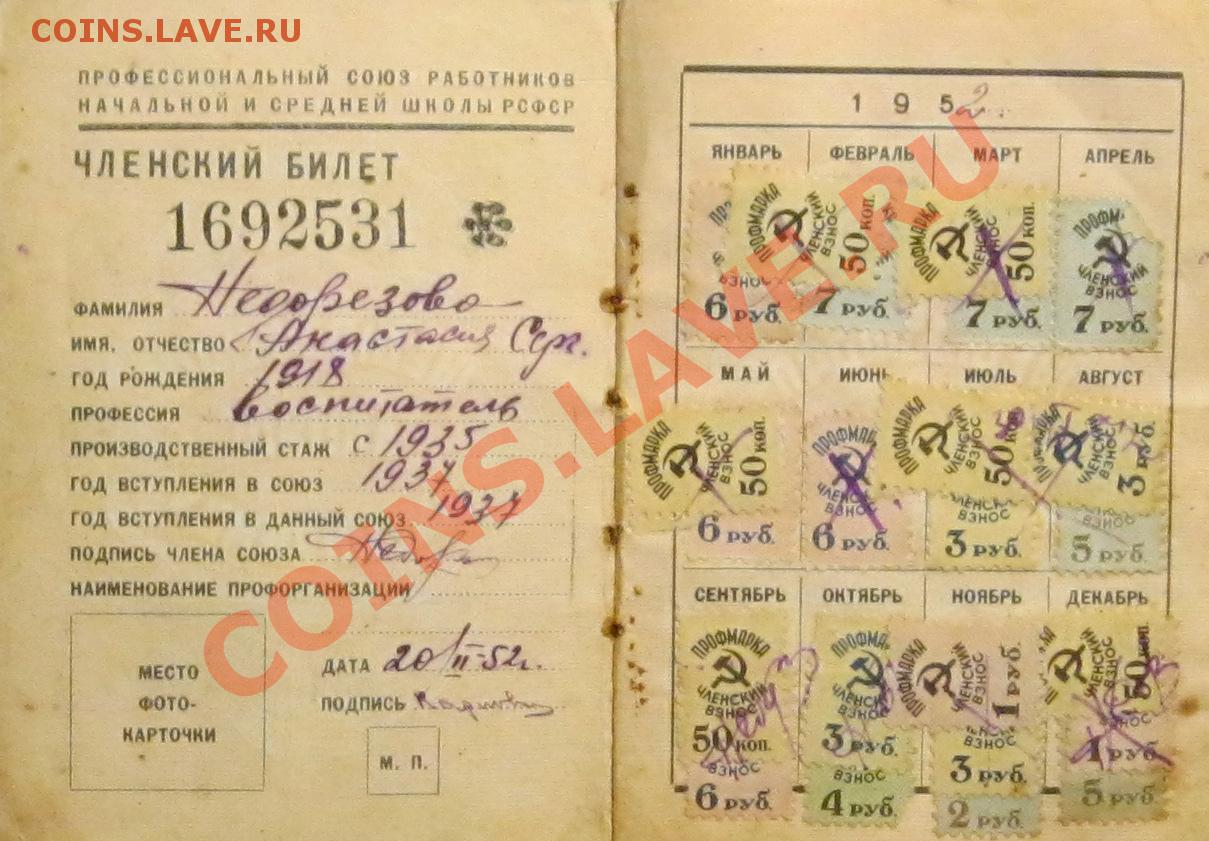 COINS.LAVE.RU
ПРОФЕССИОНАЛЬНЫЙ СОЮЗ РАБОТНИКОВ
НАЧАЛЬНОЙ И СРЕДНЕЙ ШКОЛЫ РСФСР
ЧЛЕНСКИЙ БИЛЕТ
1692531
ФАМИЛИЯ Недорезова
ИМЯ, ОТЧЕСТВО Анастасия Серг.
ГОД РОЖДЕНИЯ 1918
ПРОФЕССИЯ воспитатель
ПРОИЗВОДСТВЕННЫЙ СТАЖ с 1935
ГОД ВСТУПЛЕНИЯ В СОЮЗ 1937
ГОД ВСТУПЛЕНИЯ В ДАННЫЙ СОЮЗ 1937
ПОДПИСЬ ЧЛЕНА СОЮЗА
НАИМЕНОВАНИЕ ПРОФОРГАНИЗАЦИИ
МЕСТО
ФОТО-
КАРТОЧКИ
ДАТА 20/II-52г.
ПОДПИСЬ
М. П.
1952
ЯНВАРЬ ФЕВРАЛЬ МАРТ АПРЕЛЬ
ПРОФМАРКА ЧЛЕНСКИЙ ВЗНОС 50 КОП.
ПРОФМАРКА ЧЛЕНСКИЙ ВЗНОС 50 КОП.
ПРОФМА ЧЛЕНСКИЙ ВЗНОС
ВЗНОС
6 РУБ. 7 РУБ. 7 РУБ. 7 РУБ.
МАЙ ИЮНЬ ИЮЛЬ АВГУСТ
ПРОФМАРКА ЧЛЕНСКИЙ ВЗНОС 50 КОП.
ПРОФМА ЧЛЕНСКИЙ ВЗНОС
ПРОФМАРКА ЧЛЕНСКИЙ ВЗНОС 50 КОП.
ЧЛЕНСКИЙ ВЗНОС 3 РУБ.
ВЗНОС
6 РУБ. 6 РУБ. 3 РУБ. 5 РУБ.
СЕНТЯБРЬ ОКТЯБРЬ НОЯБРЬ ДЕКАБРЬ
ПРОФМАРКА ЧЛЕНСКИЙ ВЗНОС 50 КОП.
ПРОФМА ЧЛЕНСКИЙ ВЗНОС 3 РУБ.
ПРОФМАРКА ЧЛЕНСКИЙ ВЗНОС 1 РУБ.
ЧЛЕНСКИЙ ВЗНОС 50 КОП.
ВЗНОС 3 РУБ.
ВЗНОС 1 РУБ.
ВЗНОС 6 РУБ.
ВЗНОС 4 РУБ.
2 РУБ.
5 РУБ.
COINS.LAVE.RU